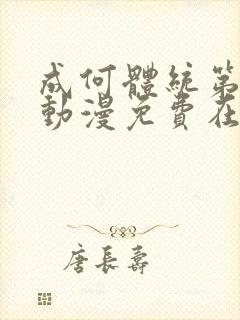 成何體統第
動漫免費在
唐長壽